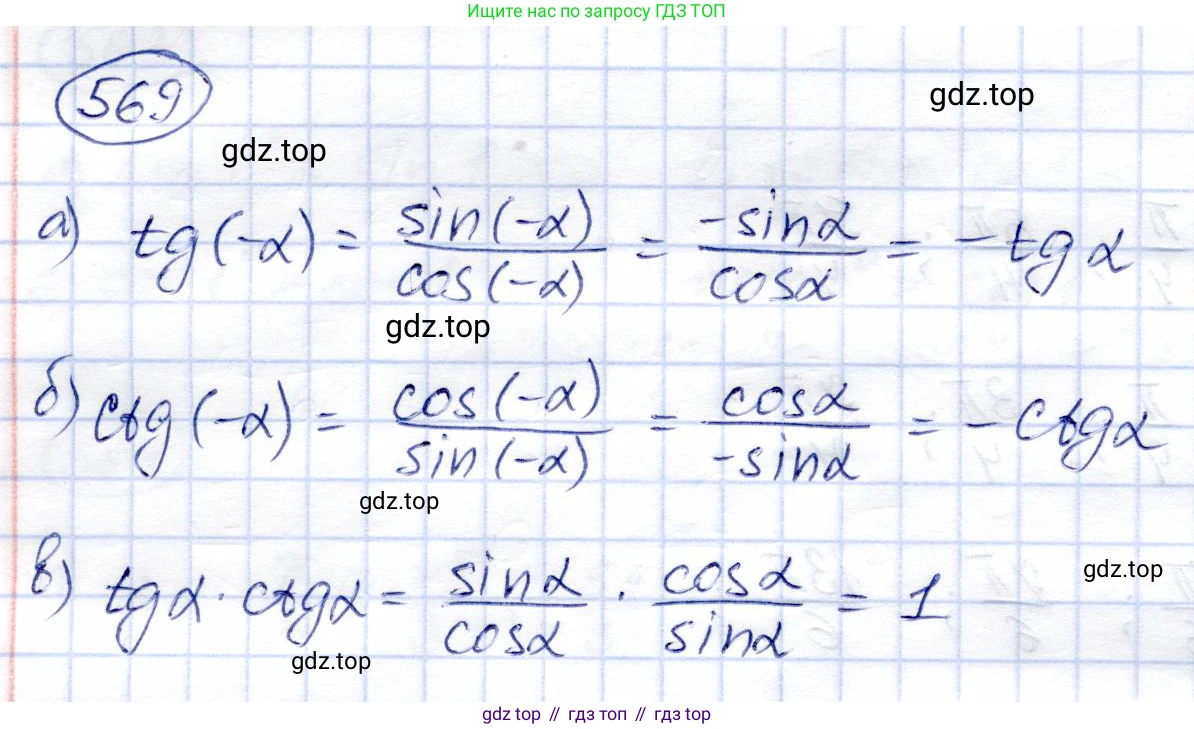 Ищите нас по запросу ГДЗ ТОП
569
gdz.top
gdz.top
а) tg(-α) = sin(-α)/cos(-α) = -sinα/cosα = -tgα
gdz.top
б) ctg(-α) = cos(-α)/sin(-α) = cosα/-sinα = -ctgα
gdz.top
в) tgα · ctgα = sinα/cosα · cosα/sinα = 1
gdz.top
gdz.top
gdz top // гдз топ // gdz top